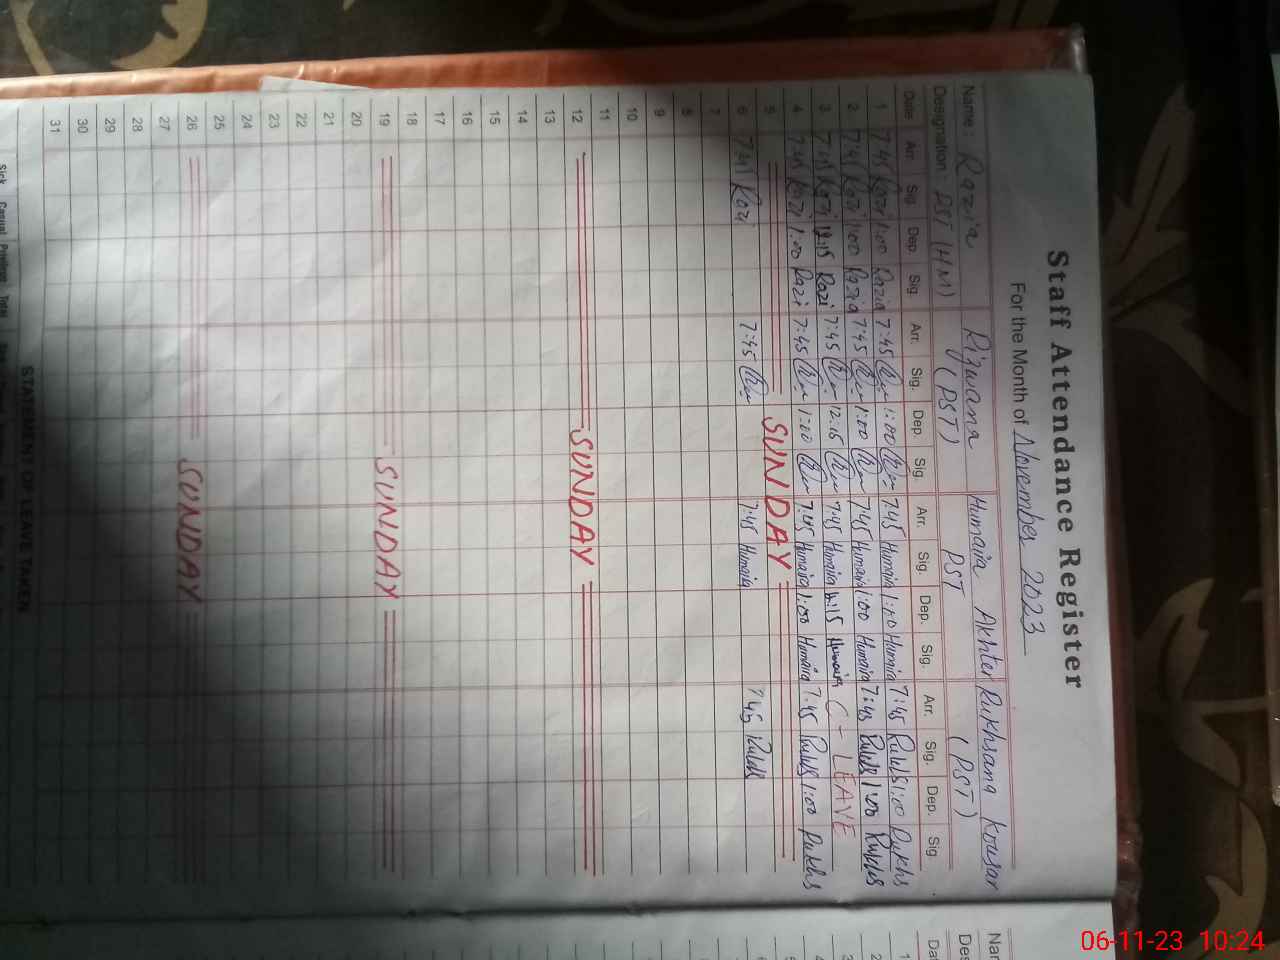 Staff Attendance Register
For the Month of November 2023
Name : Razia Rizwana Humaira Akhter Rukhsana Kousar
Designation : PST (HM) (PST) PST (PST)
Date Arr. Sig. Dep. Sig. Arr. Sig. Dep. Sig. Arr. Sig. Dep. Sig. Arr. Sig. Dep. Sig.
1 7:45 Razi 1:00 Razia 7:45 1:00 7:45 Humaira 1:00 Humaira 7:45 Rukhs 1:00 Rukhs
2 7:45 Razi 1:00 Razia 7:45 1:00 7:45 Humaira 1:00 Humaira 7:45 Rukhs 1:00 Rukhs
3 7:45 Razi 12:15 Razi 7:45 12:15 7:45 Humaira 12:15 Humaira C - LEAVE
4 7:45 Razi 1:00 Razi 7:45 1:00 7:45 Humaira 1:00 Humaira 7:45 Rukhs 1:00 Rukhs
5 SUNDAY
6 7:45 Razi 7:45 7:45 Humaira 7:45 Rukhs
7
8
9
10
11
12 SUNDAY
13
14
15
16
17
18
19 SUNDAY
20
21
22
23
24
25
26 SUNDAY
27
28
29
30
31
STATEMENT OF LEAVE TAKEN
Sick Casual Privilege Total
Nar
Des
Dat
1
2
3
4
5
6
06-11-23 10:24